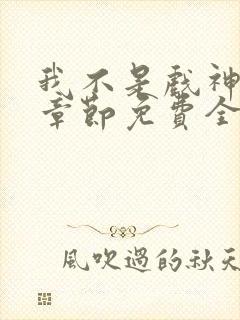 我不是戏神
章节免费全
風吹過的秋天